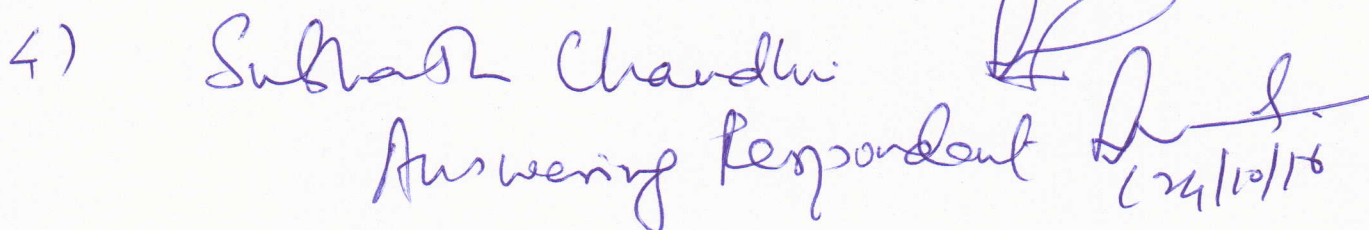 4) Subhash Chaudhri
Answering Respondent
(24/10/16